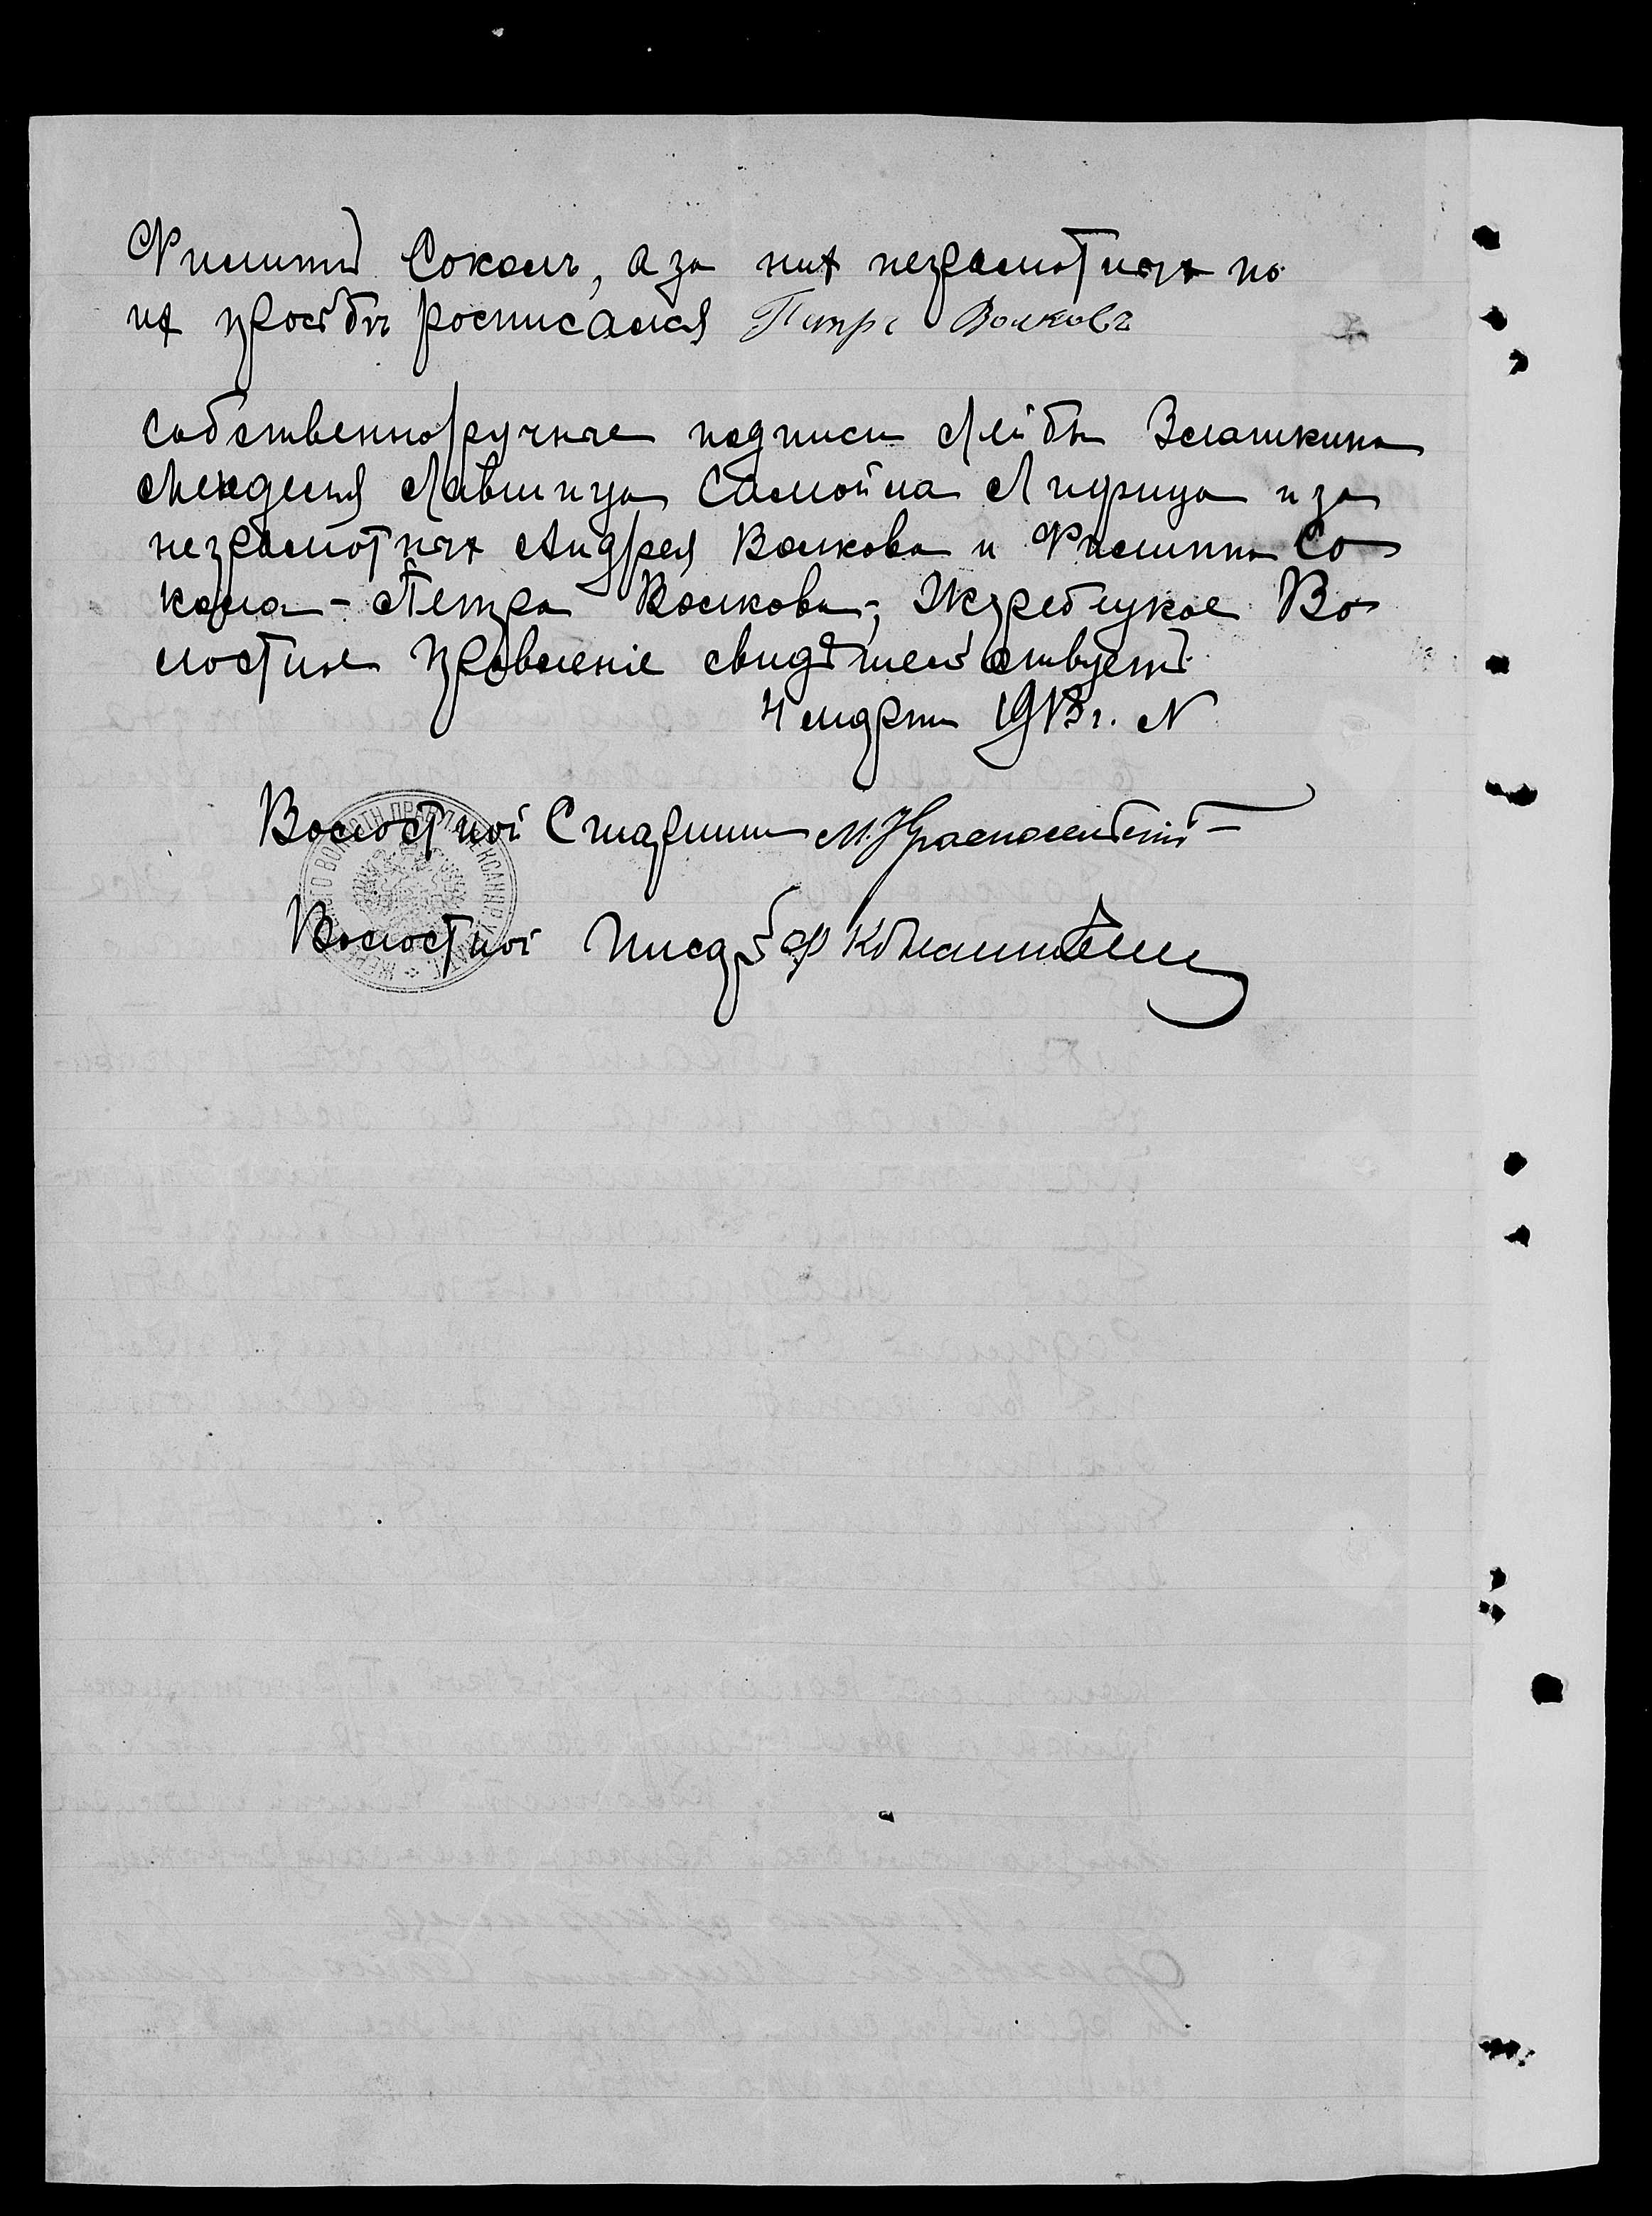 Филиппъ Соколъ, а за них неграмотных по
их просьбѣ росписался Петръ Волковъ
Собственноручные подписи Лейбы Златкина
Менделя Лившица Самойла Лифшица и за
неграмотных Андрея Волкова и Филиппа Со
кола - Петра Волкова, Жеребецкое Во
лостное Правленіе свидѣтельствуетъ
4 марта 1913 г. N
Волостной Старшина М.
Волостной Писарь